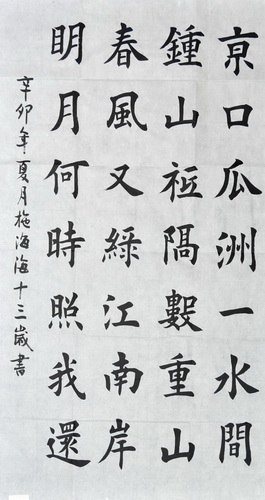 京口瓜洲一水間
鍾山衹隔數重山
春風又綠江南岸
明月何時照我還
辛卯年夏月施海海十三歲書